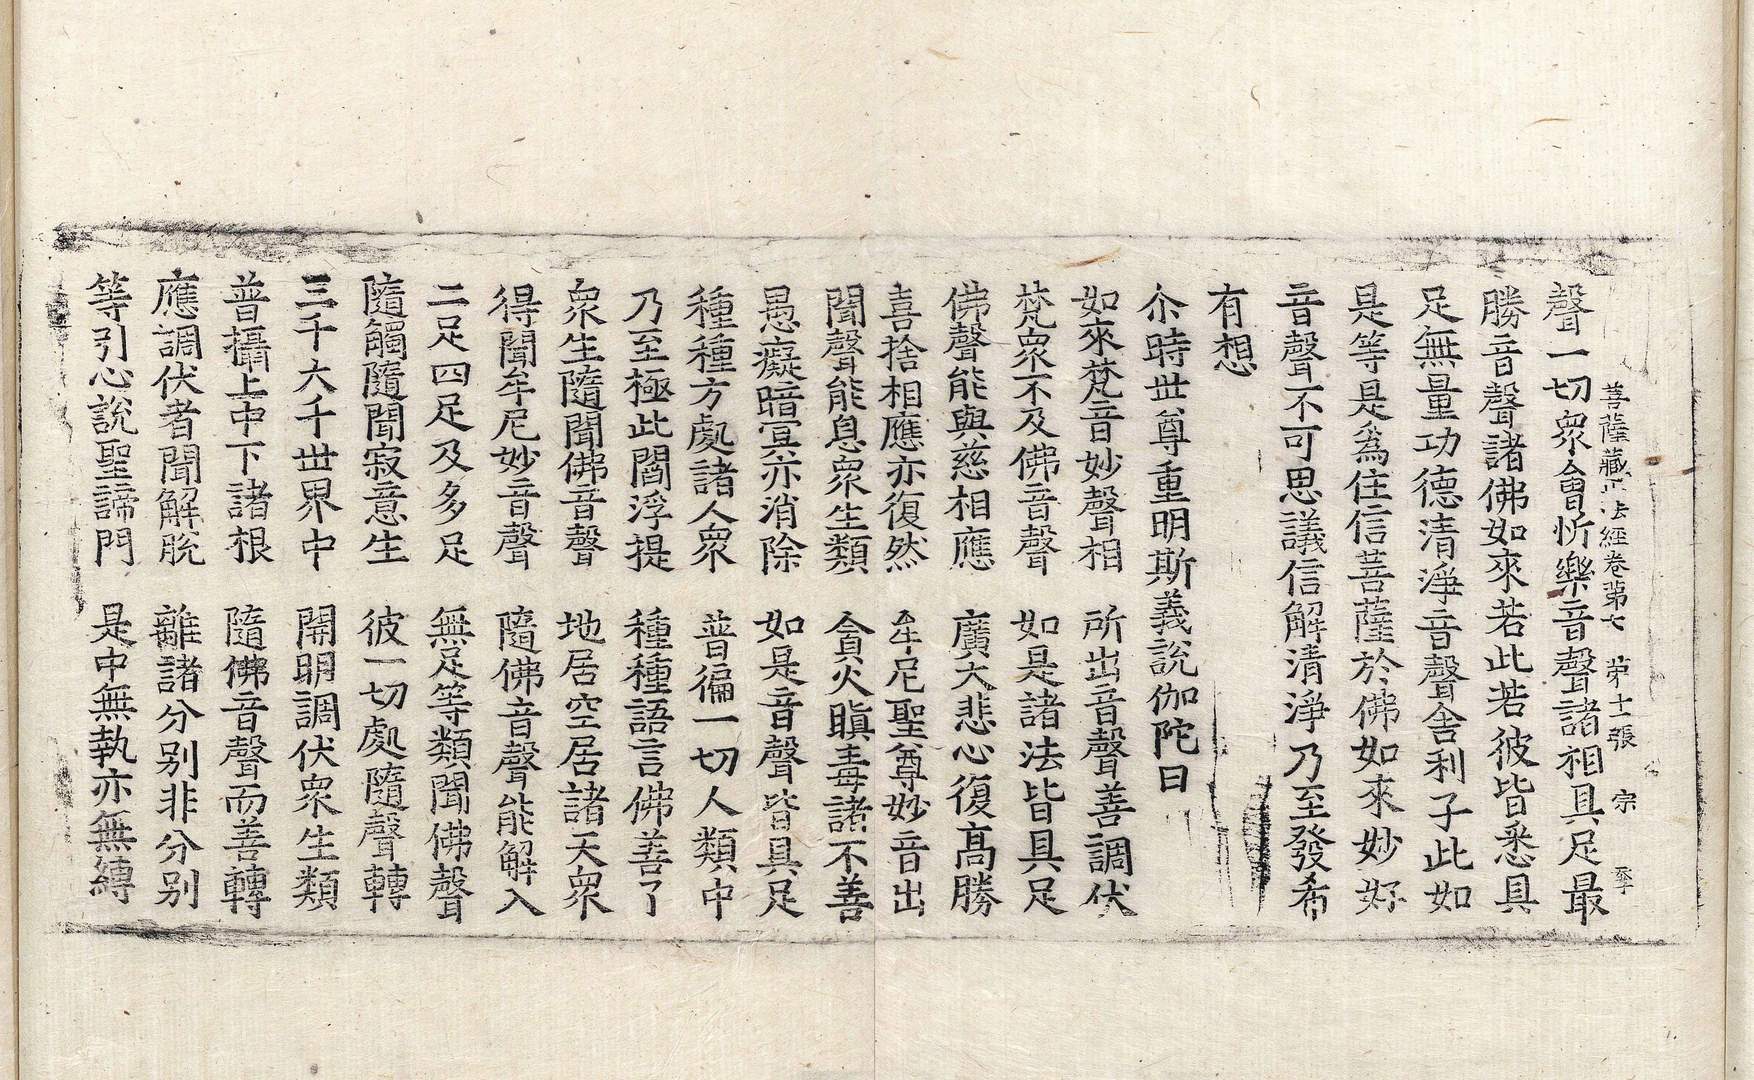 菩薩藏正法經卷第七　第十一張　宗
聲一切衆會忻樂音聲諸相具足最
勝音聲諸佛如來若此若彼皆悉具
足無量功德清淨音聲舍利子此如
是等是爲住信菩薩於佛如來妙好
音聲不可思議信解清淨乃至發希
有想
尒時世尊重明斯義說伽陀曰
如來梵音妙聲相　所出音聲善調伏
梵衆不及佛音聲　如是諸法皆具足
佛聲能與慈相應　廣大悲心復高勝
喜捨相應亦復然　牟尼聖尊妙音出
聞聲能息衆生類　貪火瞋毒諸不善
愚癡暗冥亦消除　如是音聲皆具足
種種方處諸人衆　普徧一切人類中
乃至極此閻浮提　種種語言佛善了
衆生隨聞佛音聲　地居空居諸天衆
得聞牟尼妙音聲　隨佛音聲能解入
二足四足及多足　無足等類聞佛聲
隨觸隨聞寂意生　彼一切處隨聲轉
三千大千世界中　開明調伏衆生類
普攝上中下諸根　隨佛音聲而善轉
應調伏者聞解脫　離諸分別非分別
等引心說聖諦門　是中無執亦無縛